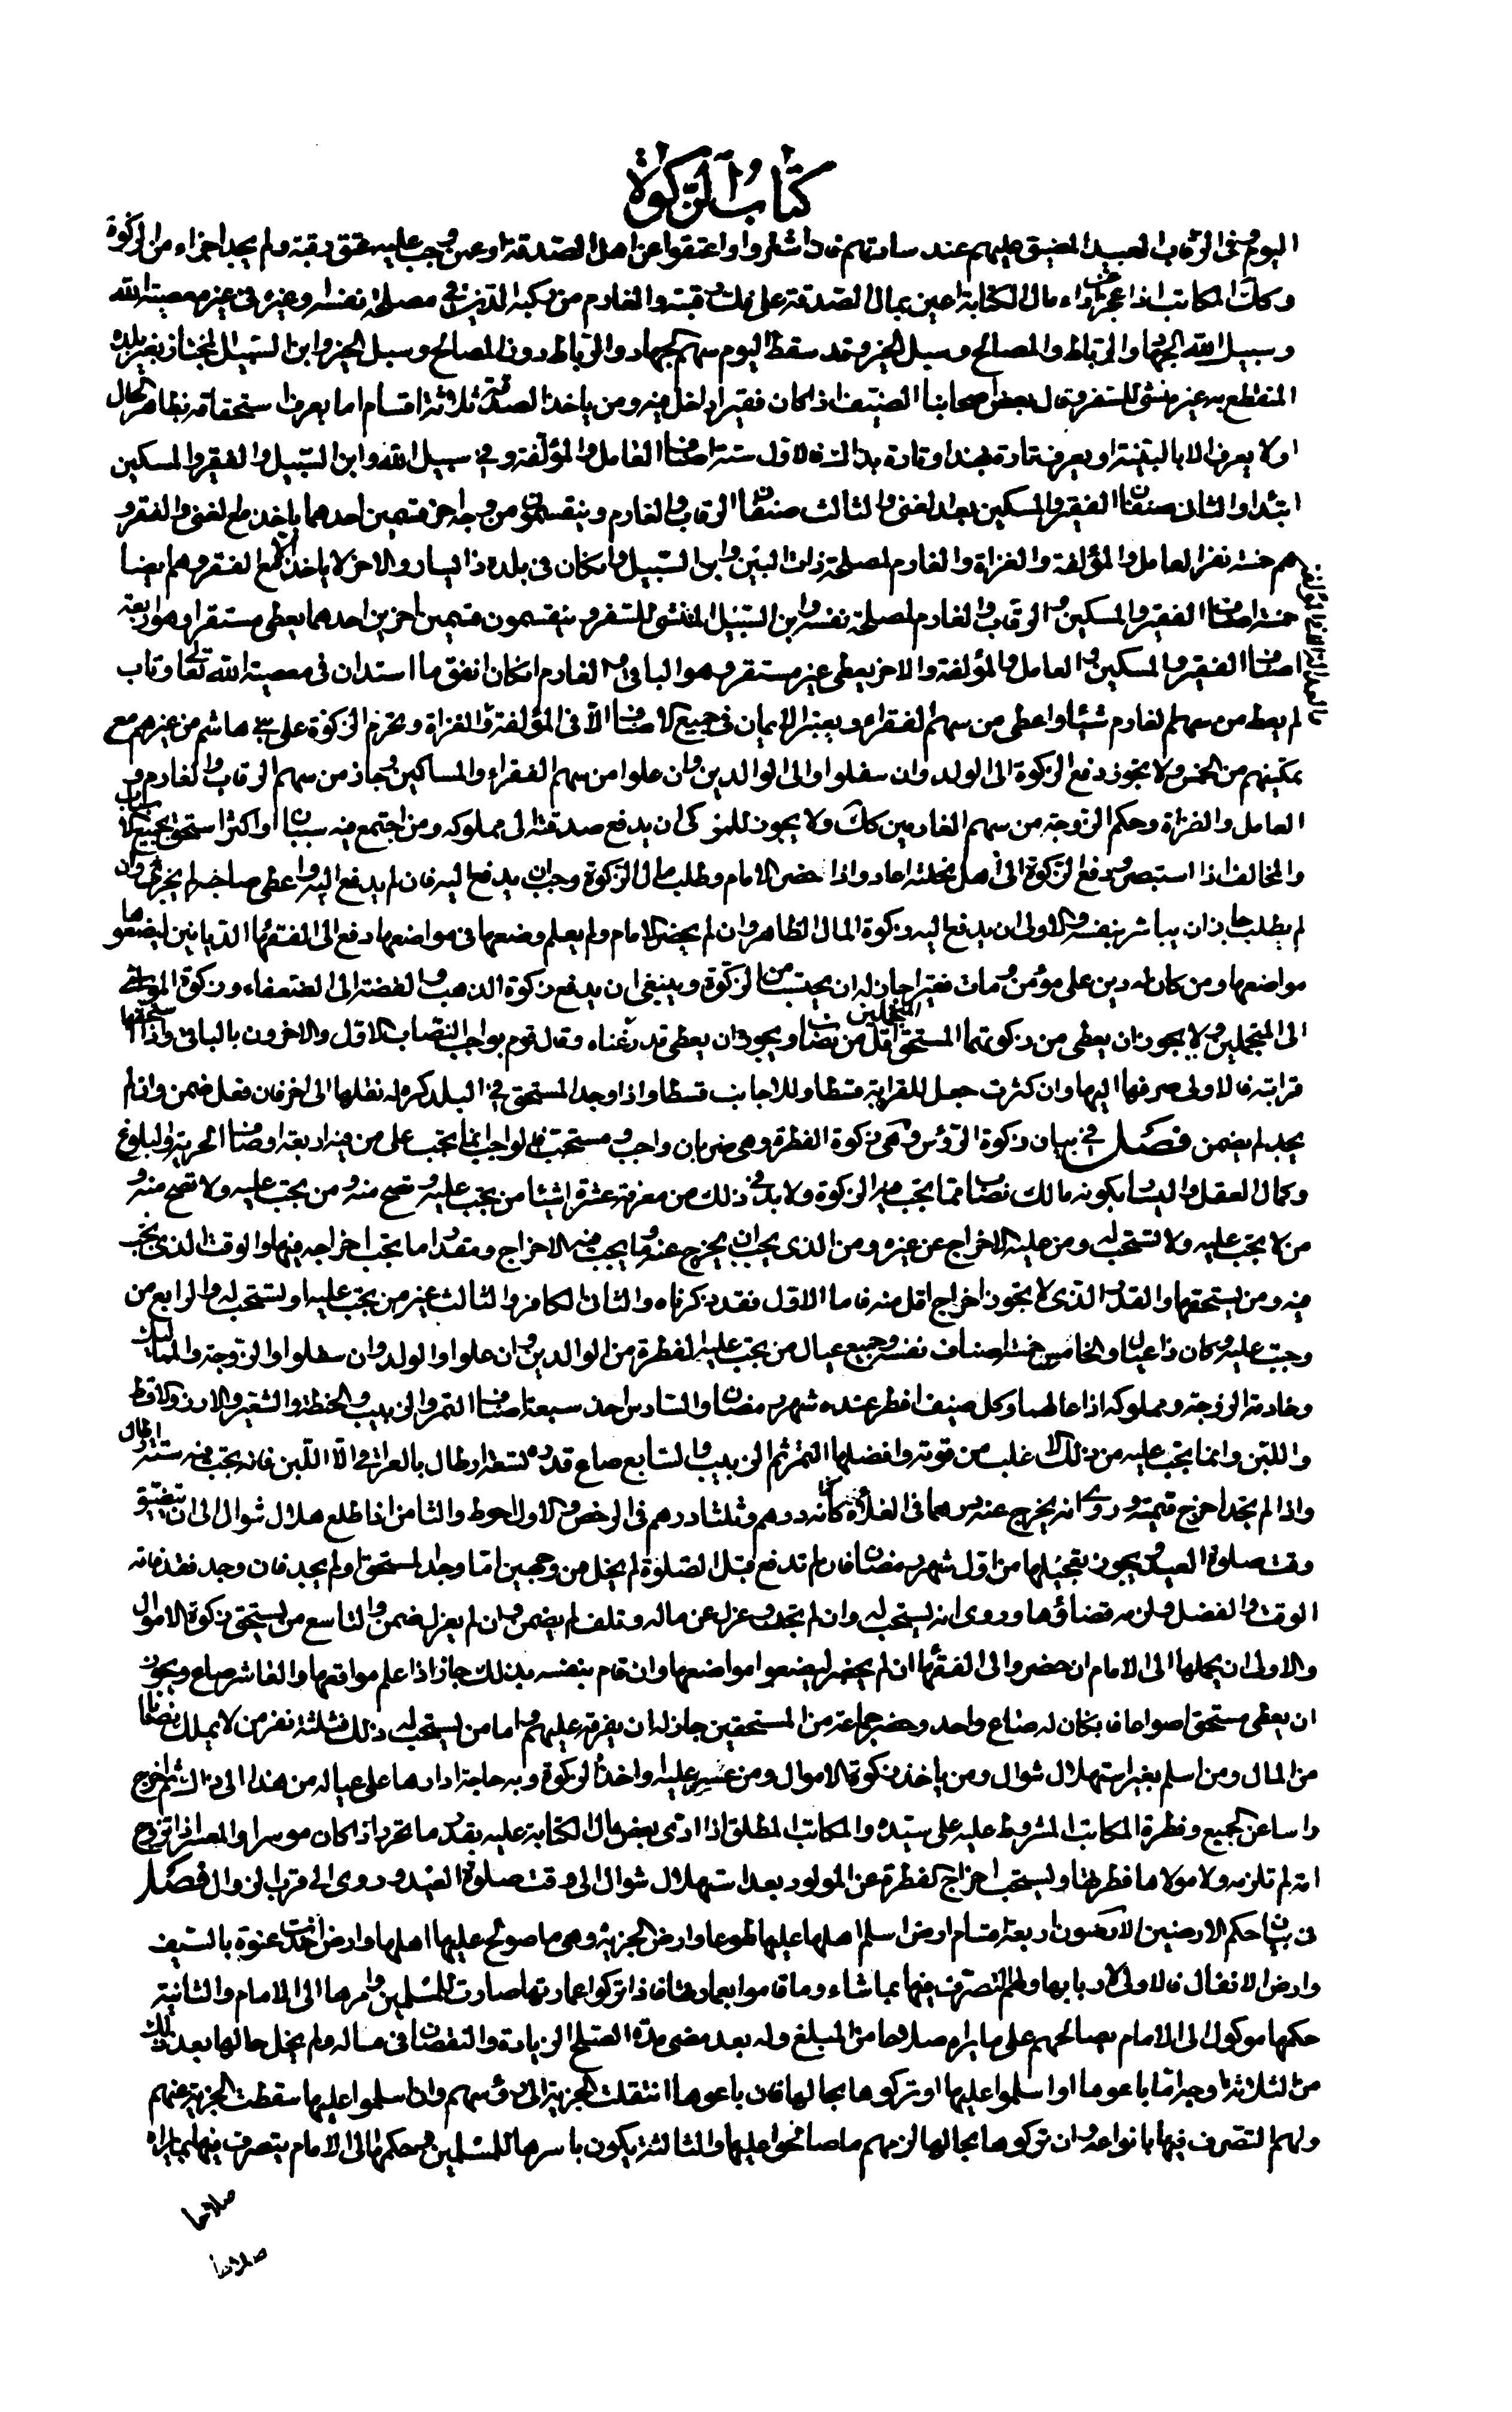 كتاب الزكوة
اليوم وفى الرقاب العبيد المضيق عليهم عند ساداتهم فاذا اشتروا واعتقوا عن اهل الصدقة او عمن وجب عليه عتق رقبة ولم يجد اجزاء من الزكوة
وكك المكاتب اذا عجز عن اداء مال الكتابة اعين بمال الصدقة على فك رقبته والغارم من ركبه الدين فى مصلحة نفسه وغيره فى غير معصية الله
وسبيل الله الجهاد والرباط والمصالح وسبل الخير وقد سقط اليوم سهم الجهاد والرباط دون المصالح وسبل الخير وابن السبيل المجتاز بغير بلده
المنقطع به غير منشئ للسفر وقال بعض اصحابنا الضيف اذا كان فقيرا دخل فيه ومن ياخذ الصدقة ثلاثة اقسام اما يعرف استحقاقه بظاهر الحال
او لا يعرف الا بالبينة او يعرف تارة بهذا وتارة بذاك فالاول ستة اصناف العامل والمؤلفة وفى سبيل الله وابن السبيل والفقير والمسكين
ابتداء والثانى صنفان الفقير والمسكين بعد الغنى والثالث صنفان الرقاب والغارم وينقسمون من وجه اخر قسمين احدهما ياخذ مع الغنى والفقر و
هم خمسة نفر العامل والمؤلفة والغزاة والغارم لمصلحة ذات البين وابن السبيل وان كان فى بلده ذا يسار والاخر لا ياخذ الا مع الفقر وهم ايضا
خمسة اصناف الفقير والمسكين والرقاب والغارم لمصلحة نفسه وابن السبيل المنشئ للسفر وينقسمون قسمين اخرين احدهما يعطى مستقرا وهو اربعة
اصناف الفقير والمسكين والعامل والمؤلفة والاخر يعطى غير مستقر وهو الباقى والغارم ان كان انفق ما استدان فى معصية الله تعالى وتاب
لم يعط من سهم الغارم شيئا واعطى من سهم الفقراء ويعتبر الايمان فى جميع الاصناف الا فى المؤلفة والغزاة وتحرم الزكوة على بنى هاشم من غيرهم مع
تمكينهم من الخمس ولا يجوز دفع الزكوة الى الولد وان سفلوا والى الوالدين وان علوا من سهم الفقراء والمساكين وجاز من سهم الرقاب والغارم و
العامل والغزاة وحكم الزوجة من سهم الغارمين كك ولا يجوز للمزكى ان يدفع صدقته الى مملوكه ومن اجتمع فيه سببان او اكثر استحق بجميع الاسباب
والمخالف اذا استبصر وقد دفع الزكوة الى اهل نحلته اعاد واذا حضر الامام وطلب مال الزكوة وجب ان يدفع اليه فان لم يدفع اليه واعطى صاحبه لم يجز عنه وان
لم يطلب جاز ان يباشر بنفسه والاولى ان يدفع اليه زكوة المال الظاهر وان لم يحضر الامام ولم يعلم وضعها فى مواضعها دفع الى الفقهاء الديانين ليضعوها
مواضعها ومن كان له دين على مؤمن ومات فقيرا جاز له ان يحتسب من الزكوة وينبغى ان يدفع زكوة الذهب والفضة الى الضعفاء وزكوة المواشى
الى المتجملين ولا يجوز ان يعطى من زكوتهما المستحق اقل من نصاب ويجوز ان يعطى قدر غناه وقال قوم بواجب النصاب الاول والاخرون بالباقى واذا كان مستحقها
قرابته فالاولى صرفها اليها وان كثرت جعل للقرابة قسطا وللاجانب قسطا واذا وجد المستحق فى البلد كره له نقلها الى اخر فان فعل ضمن وان لم
يجد لم يضمن فصل فى بيان زكوة الرؤس وهى زكوة الفطرة وهى ضربان واجب ومستحب فالواجب انما يجب على من فيه اربعة اوصاف الحرية والبلوغ
وكمال العقل واليسار بكونه مالك نصاب مما يجب فيه الزكوة ولا بد فى ذلك من معرفة عشرة اشياء من يجب عليه وتصح منه ومن يجب عليه ولا تصح منه و
من لا يجب عليه ولا تستحب له ومن عليه الاخراج عن غيره ومن الذى يجب ان يخرج عنه وما يجب فيه الاخراج ومقدار ما يجب اخراجه فيها والوقت الذى يجب
فيه ومن يستحقها والقدر الذى لا يجوز اخراج اقل منه فاما الاول فقد ذكرناه والثانى الكافر والثالث غير من يجب عليه او تستحب له والرابع من
وجبت عليه وكان ذا عيال والخامس خمسة اصناف نفسه وجميع عيال من يجب عليه الفطرة من الوالدين وان علوا والولد وان سفلوا والزوجة والمماليك
وخادمة الزوجة ومملوكه اذا عالهما وكل ضيف افطر عنده شهر رمضان والسادس احد سبعة اصناف التمر والزبيب والحنطة والشعير والارز والاقط
واللبن وانما يجب عليه من ذلك الاغلب من قوته وافضلها التمر ثم الزبيب والسابع صاع قدره تسعة ارطال بالعراقى الا اللبن فانه يجب فيه ستة ارطال
واذا لم يجد اخرج قيمته وروى انه يخرج عنه درهما فى الغلاء كانه درهم وثلثا درهم فى الرخص والاول احوط والثامن اذا طلع هلال شوال الى ان يتضيق
وقت صلوة العيد ويجوز تعجيلها من اول شهر رمضان فان لم تدفع قبل الصلوة لم يخل من وجهين اما وجد المستحق او لم يجد فان وجد فقد فاته
الوقت والفضل ولزمه قضاؤها وروى انه يستحب له وان لم يجد وعزل عن ماله وتلف لم يضمن وان لم يعزل ضمن والتاسع من يستحق زكوة الاموال
والاولى ان يحملها الى الامام ان حضر والى الفقهاء ان لم يحضر ليضعوا مواضعها وان قام بنفسه بذلك جاز اذا علم مواقعها والعاشر صاع ويجوز
ان يعطى مستحق اصواعا فان كان له صاع واحد وحضر جماعة من المستحقين جاز له ان يفرقه عليهم واما من يستحب له ذلك فثلثة نفر من لا يملك نصابا
من المال ومن اسلم بغير استهلال شوال ومن ياخذ زكوة الاموال ومن عسر عليه واخذ الزكوة وبه حاجة ادارها على عياله من هذا الى ذاك ثم اخرج
راسا عن الجميع وفطرة المكاتب المشروط عليه على سيده والمكاتب المطلق اذا ادى بعض مال الكتابة عليه بقدر ما تحرر اذا كان موسرا والمعسر اذا تزوج
امة لم تلزمه ولا مولاها فطرتها ويستحب اخراج الفطرة عن المولود بعد استهلال شوال الى وقت صلوة العيد وروى الى قرب الزوال فصل
فى بيان احكم الارضين الارضون اربعة اقسام ارض اسلم اهلها عليها طوعا وارض الجزية وهى ما صولح عليها اهلها وارض اخذت عنوة بالسيف
وارض الانفال فالاولى لاربابها ولهم التصرف فيها بما شاء وما قاموا بعمارتها فاذا تركوا عمارتها صارت للمسلمين وامرها الى الامام والثانية
حكمها موكول الى الامام يصالحهم على ما يراه صلاحا من المبلغ وله بعد مضى مدة الصلح الزيادة والنقصان فى مساله ولم يخل حالها بعد ذلك
من ثلاثة اوجه اما باعوها او اسلموا عليها او تركوها بحالها فان باعوها انتقلت الجزية الى رؤسهم وان اسلموا عليها سقطت الجزية عنهم
ولهم التصرف فيها بانواعه وان تركوها بحالها لزمهم ما صالحوا عليها والثالثة يكون باسرها للمسلمين وحكمها الى الامام يتصرف فيها بما يراه
صلاحا